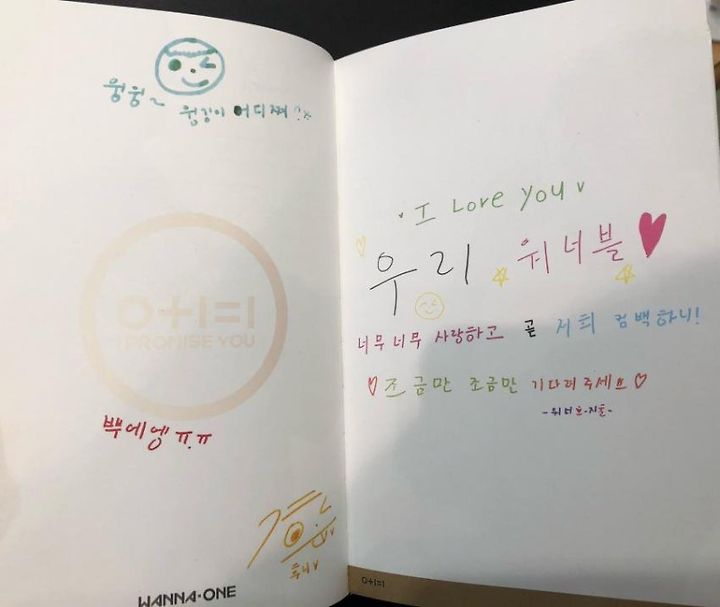 어디쪄?
0+1=1
I PROMISE YOU
ㅠ.ㅠ
WANNA·ONE
I Love you
우리 워너블
너무너무 사랑하고 곧 저희 컴백하니!
조금만 조금만 기다려주세요
지훈
0+1=1